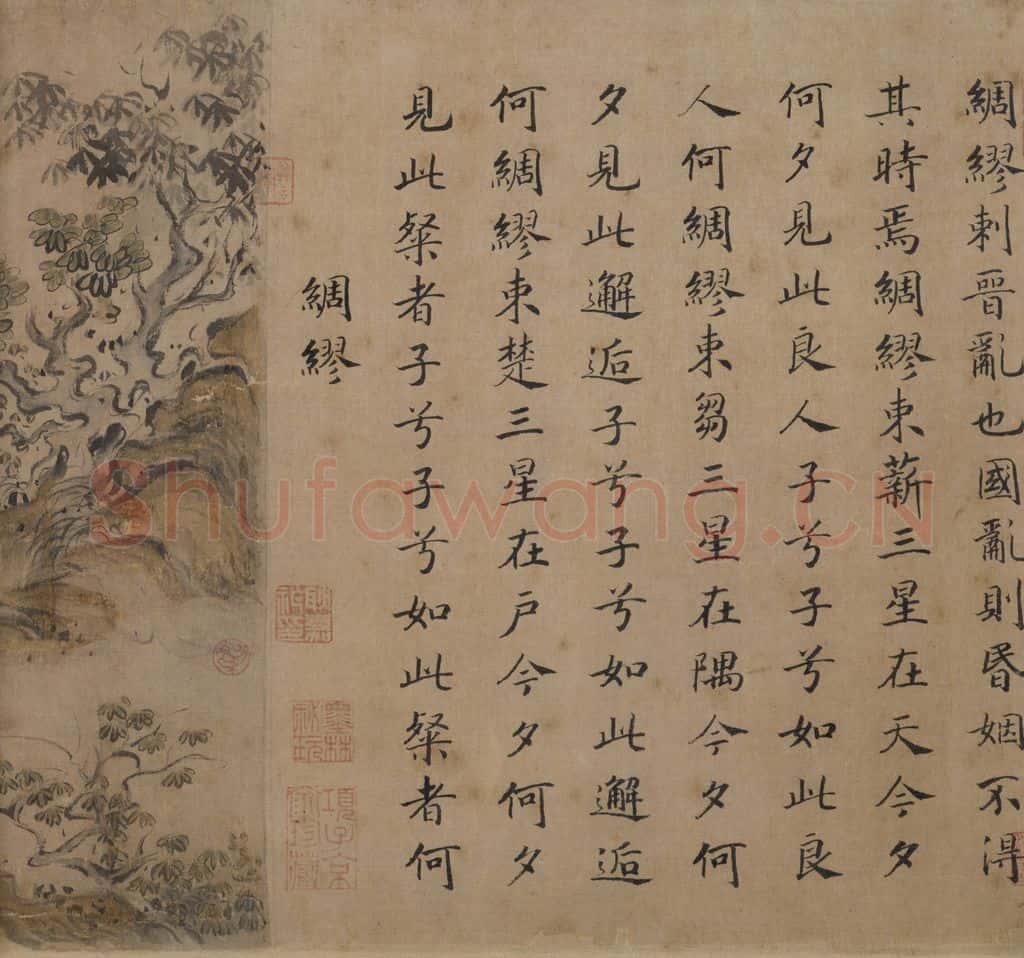 綢繆刺晉亂也國亂則昬姻不淂
其時焉綢繆束薪三星在天今夕
何夕見此良人子兮子兮如此良
人何綢繆束芻三星在隅今夕何
夕見此邂逅子兮子兮如此邂逅
何綢繆束楚三星在戶今夕何夕
見此粲者子兮子兮如此粲者何
綢繆
墨林祕玩
項子京家珍藏
Shufawang.CN